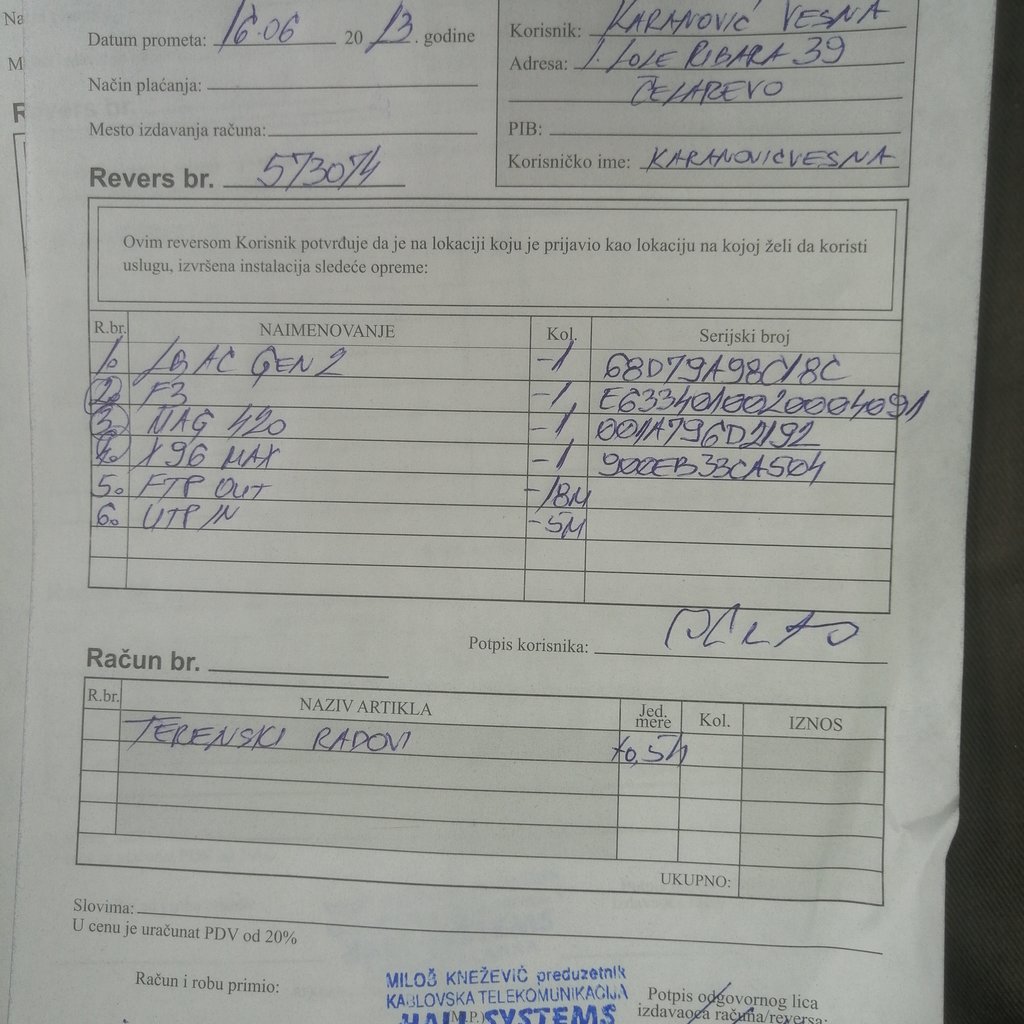 Na
Datum prometa: 16.06 2023. godine
Korisnik: KARANOVIĆ VESNA
M
Način plaćanja:
Adresa: I. LOLE RIBARA 39
ČELAREVO
Mesto izdavanja računa:
PIB:
Revers br. 573074
Korisničko ime: KARANOVICVESNA
Ovim reversom Korisnik potvrđuje da je na lokaciji koju je prijavio kao lokaciju na kojoj želi da koristi
uslugu, izvršena instalacija sledeće opreme:
R.br. NAIMENOVANJE Kol. Serijski broj
1. LBAC GEN2 -1 68D79A98C18C
2. F3 -1 E6334010020004091
3. MAG 420 -1 001A796D2192
4. X96 MAX -1 900EB33CA504
5. FTP OUT -18M
6. UTP IN -5M
Potpis korisnika:
Račun br.
R.br. NAZIV ARTIKLA Jed. mere Kol. IZNOS
TERENSKI RADOVI 0,5h
UKUPNO:
Slovima:
U cenu je uračunat PDV od 20%
Račun i robu primio:
MILOŠ KNEŽEVIĆ preduzetnik
KABLOVSKA TELEKOMUNIKACIJA
(M.P.) SYSTEMS
Potpis odgovornog lica
izdavaoca računa/reversa: